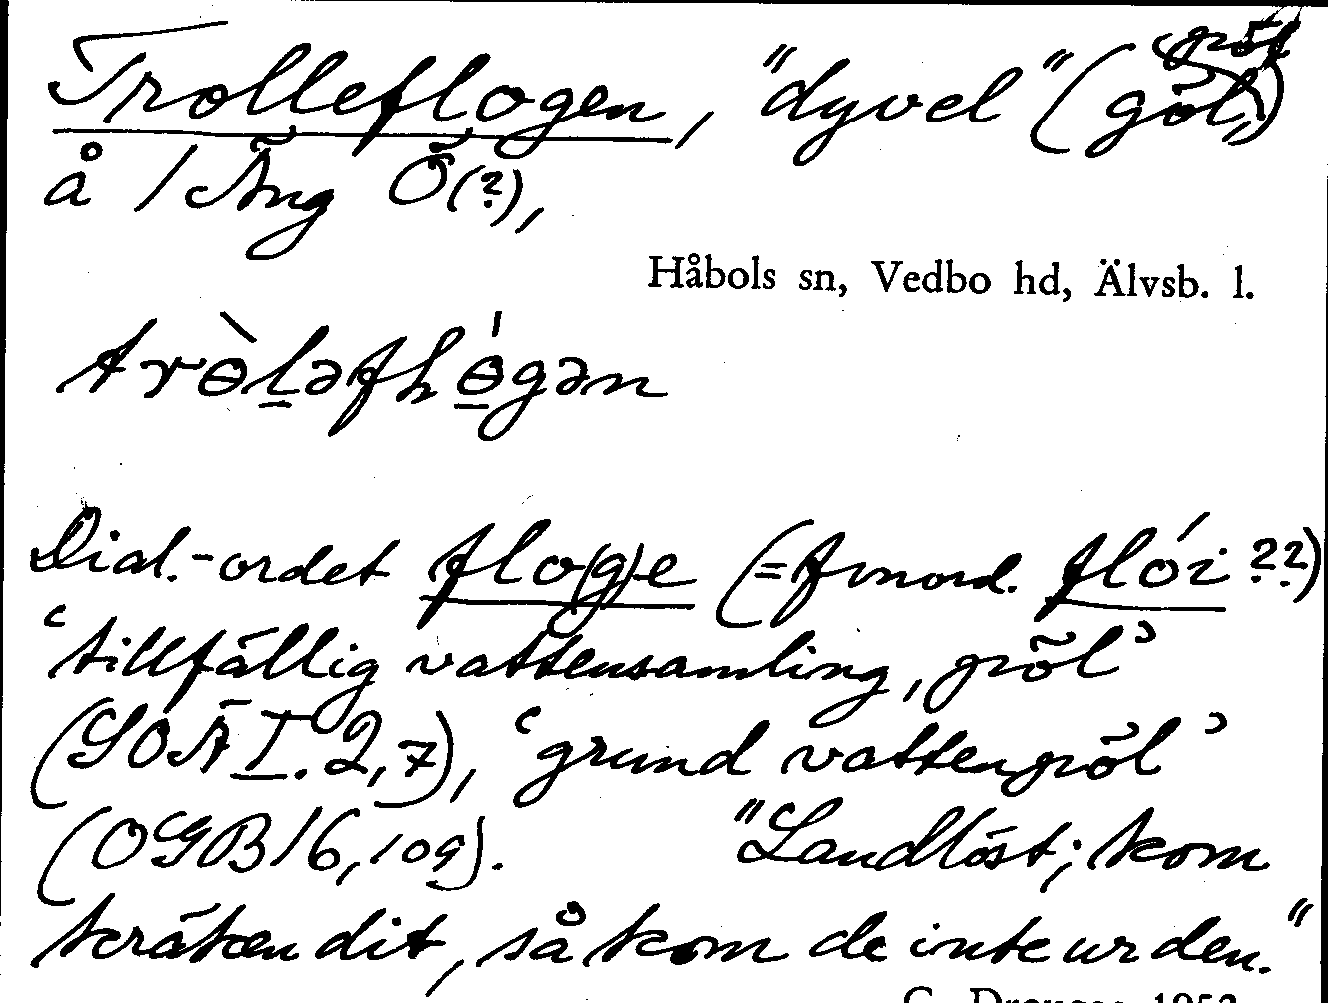 pöl
Trolleflogen, "dyvel" (göl,)
å 1 Äng Ö(?),
Håbols sn, Vedbo hd, Älvsb. l.
trɵ̀ḻəfhɵ̱́gən
Dial.-ordet flo(g)e (= fvnord. flói ??)
‘tillfällig vattensamling, pöl’
(SOÄ I. 2, 7), ‘grund vattenpöl’
(OGB 16, 109). "Landlöst; kom
kräken dit, så kom de inte ur den."